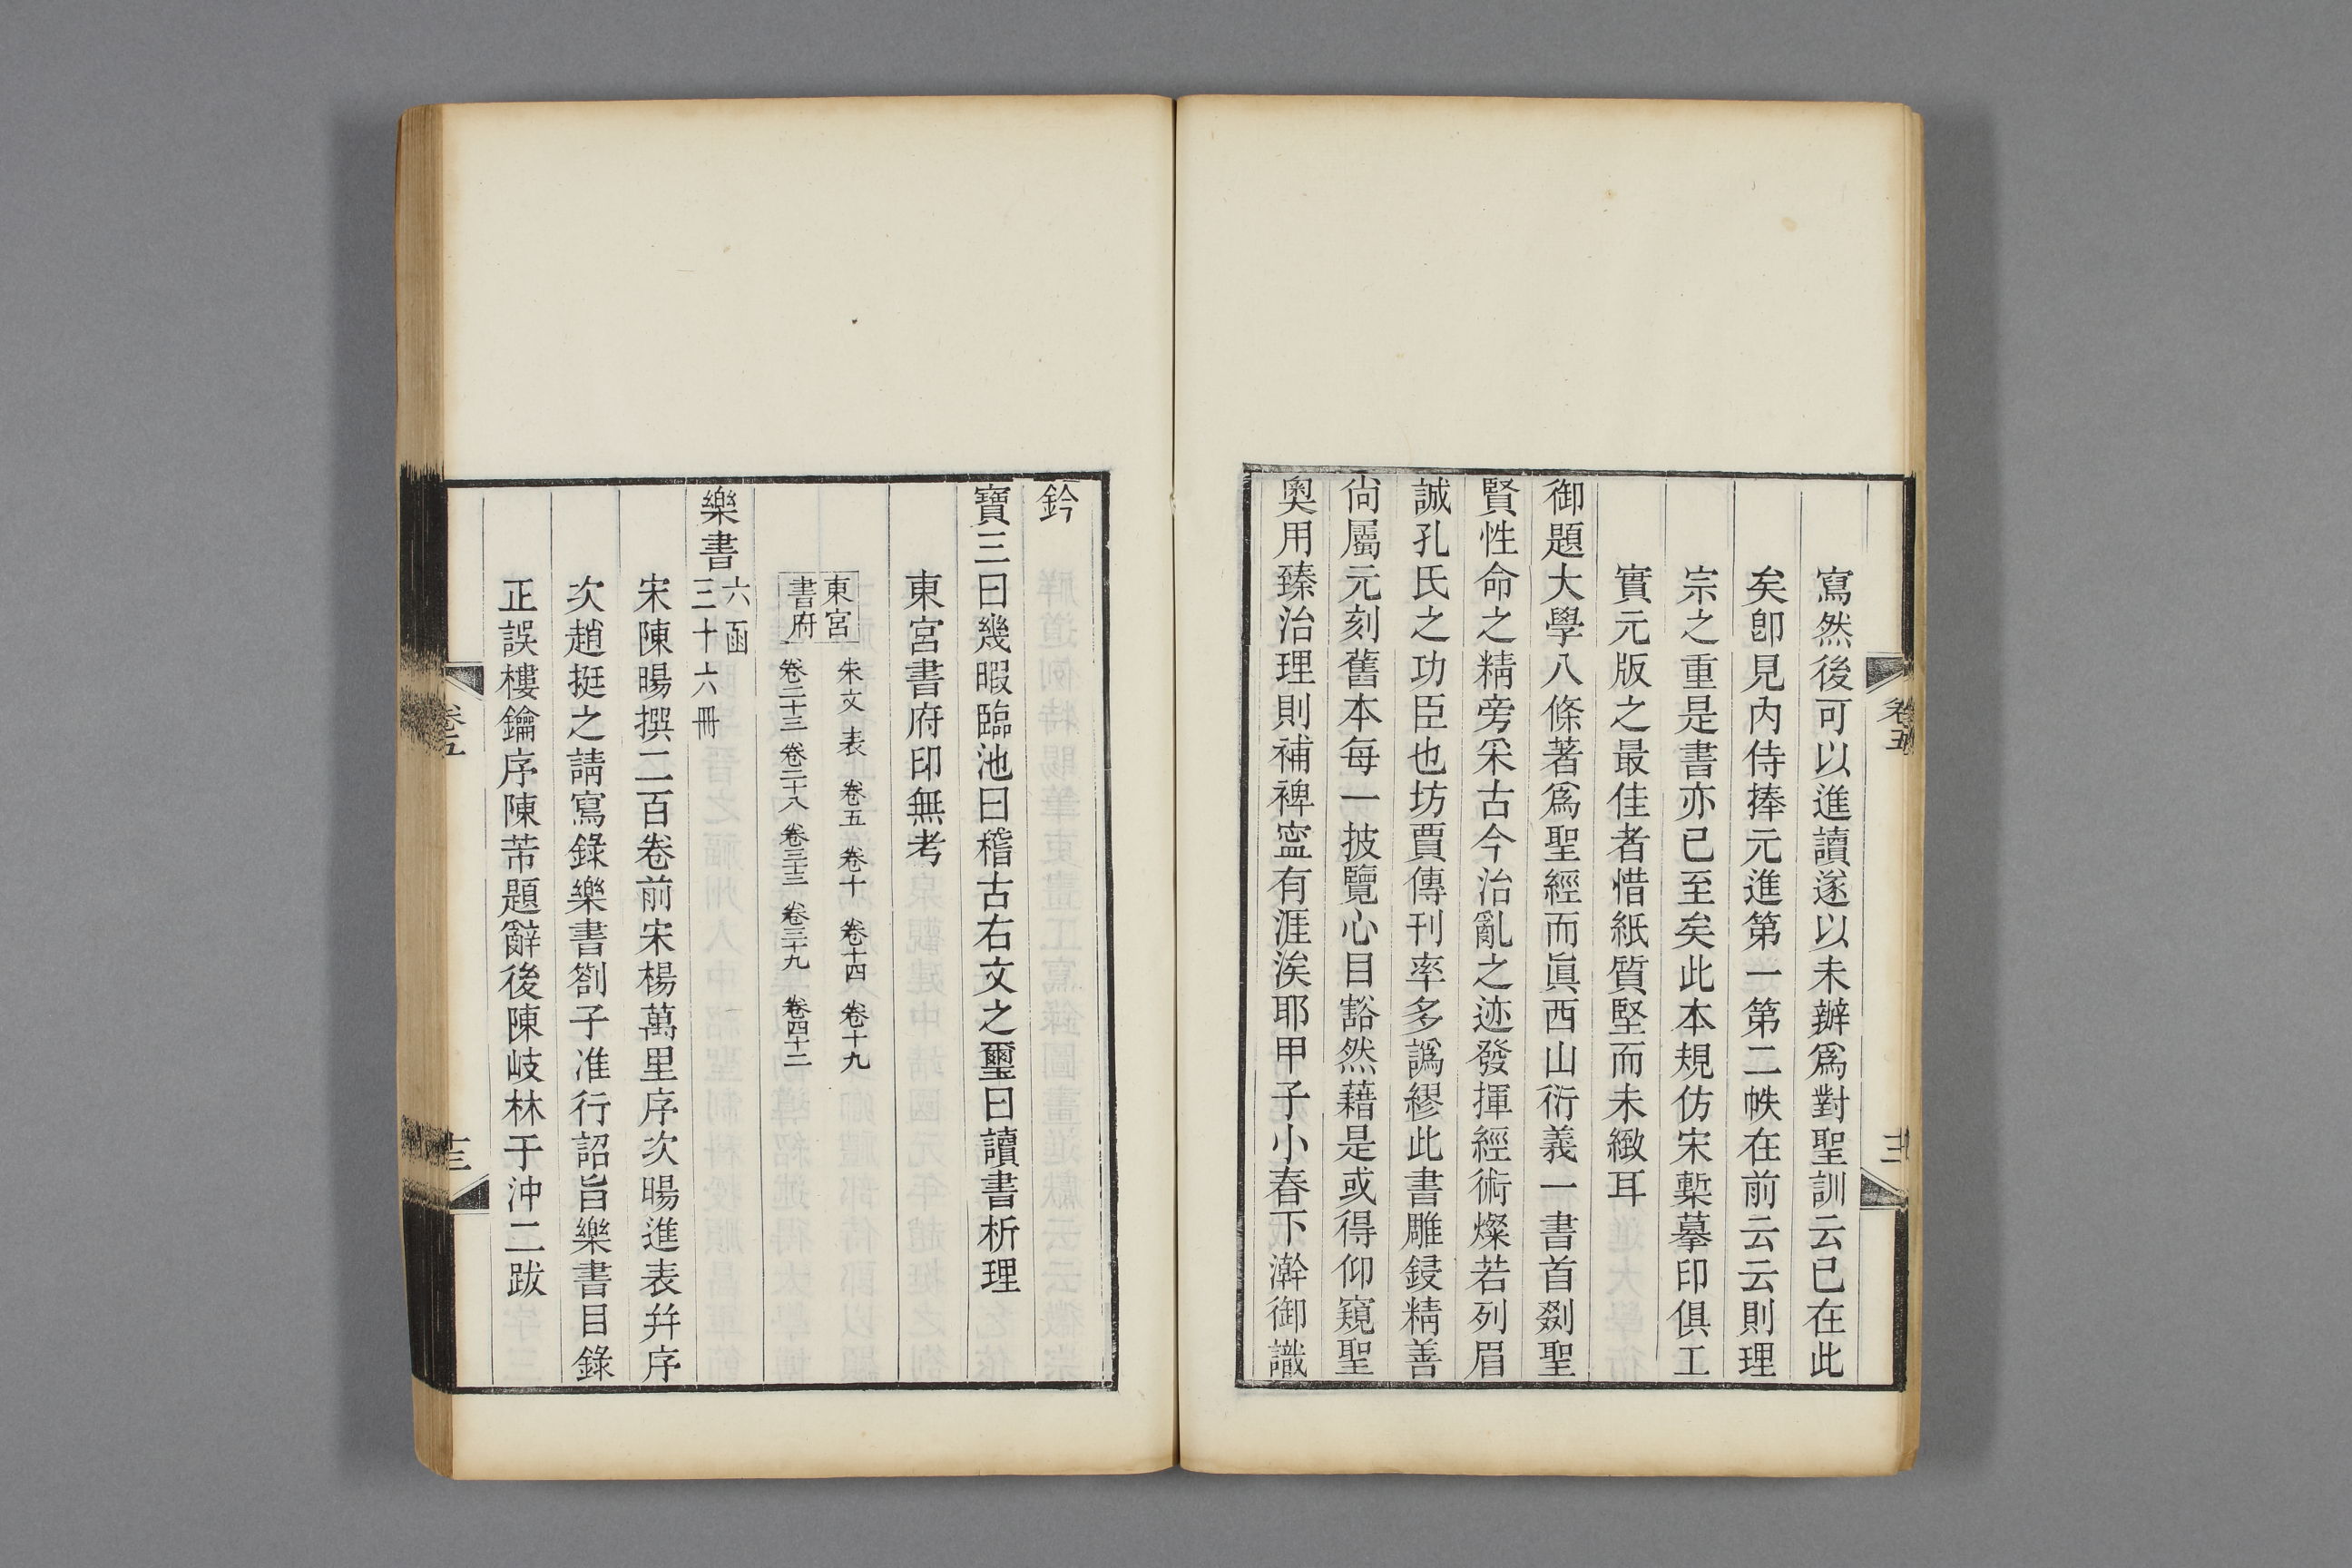 寫然後可以進讀遂以未辦爲對聖訓云已在此
矣卽見內侍捧元進第一第二帙在前云云則理
宗之重是書亦已至矣此本規仿宋槧摹印俱工
實元版之最佳者惜紙質堅而未緻耳
御題大學八條著爲聖經而眞西山衍義一書首剟聖
賢性命之精旁采古今治亂之迹發揮經術燦若列眉
誠孔氏之功臣也坊賈傳刊率多譌繆此書雕鋟精善
尙屬元刻舊本每一披覽心目豁然藉是或得仰窺聖
奧用臻治理則補裨寍有涯涘耶甲子小春下澣御識
卷五
十二
鈐
寶三曰幾暇臨池曰稽古右文之璽曰讀書析理
東宮書府印無考
東宮
書府
朱文 表 卷五 卷十 卷十四 卷十九
卷二十三 卷二十八 卷三十三 卷三十九 卷四十二
樂書
六函
三十六冊
宋陳暘撰二百卷前宋楊萬里序次暘進表幷序
次趙挺之請寫錄樂書劄子准行詔旨樂書目錄
正誤樓鑰序陳芾題辭後陳岐林于沖二跋
卷五
十三